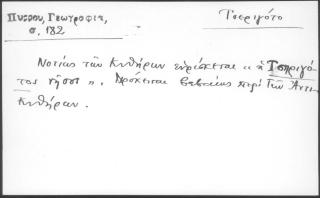 Πύρρου, Γεωγραφία,
σ. 182
Τσεριγότο
Νοτίως τῶν Κυθήρων εὑρίσκεται « ἡ Τσεριγό-
τος νῆσος ». Πρόκειται βεβαίως περὶ τῶν Ἀντι-
κυθήρων.